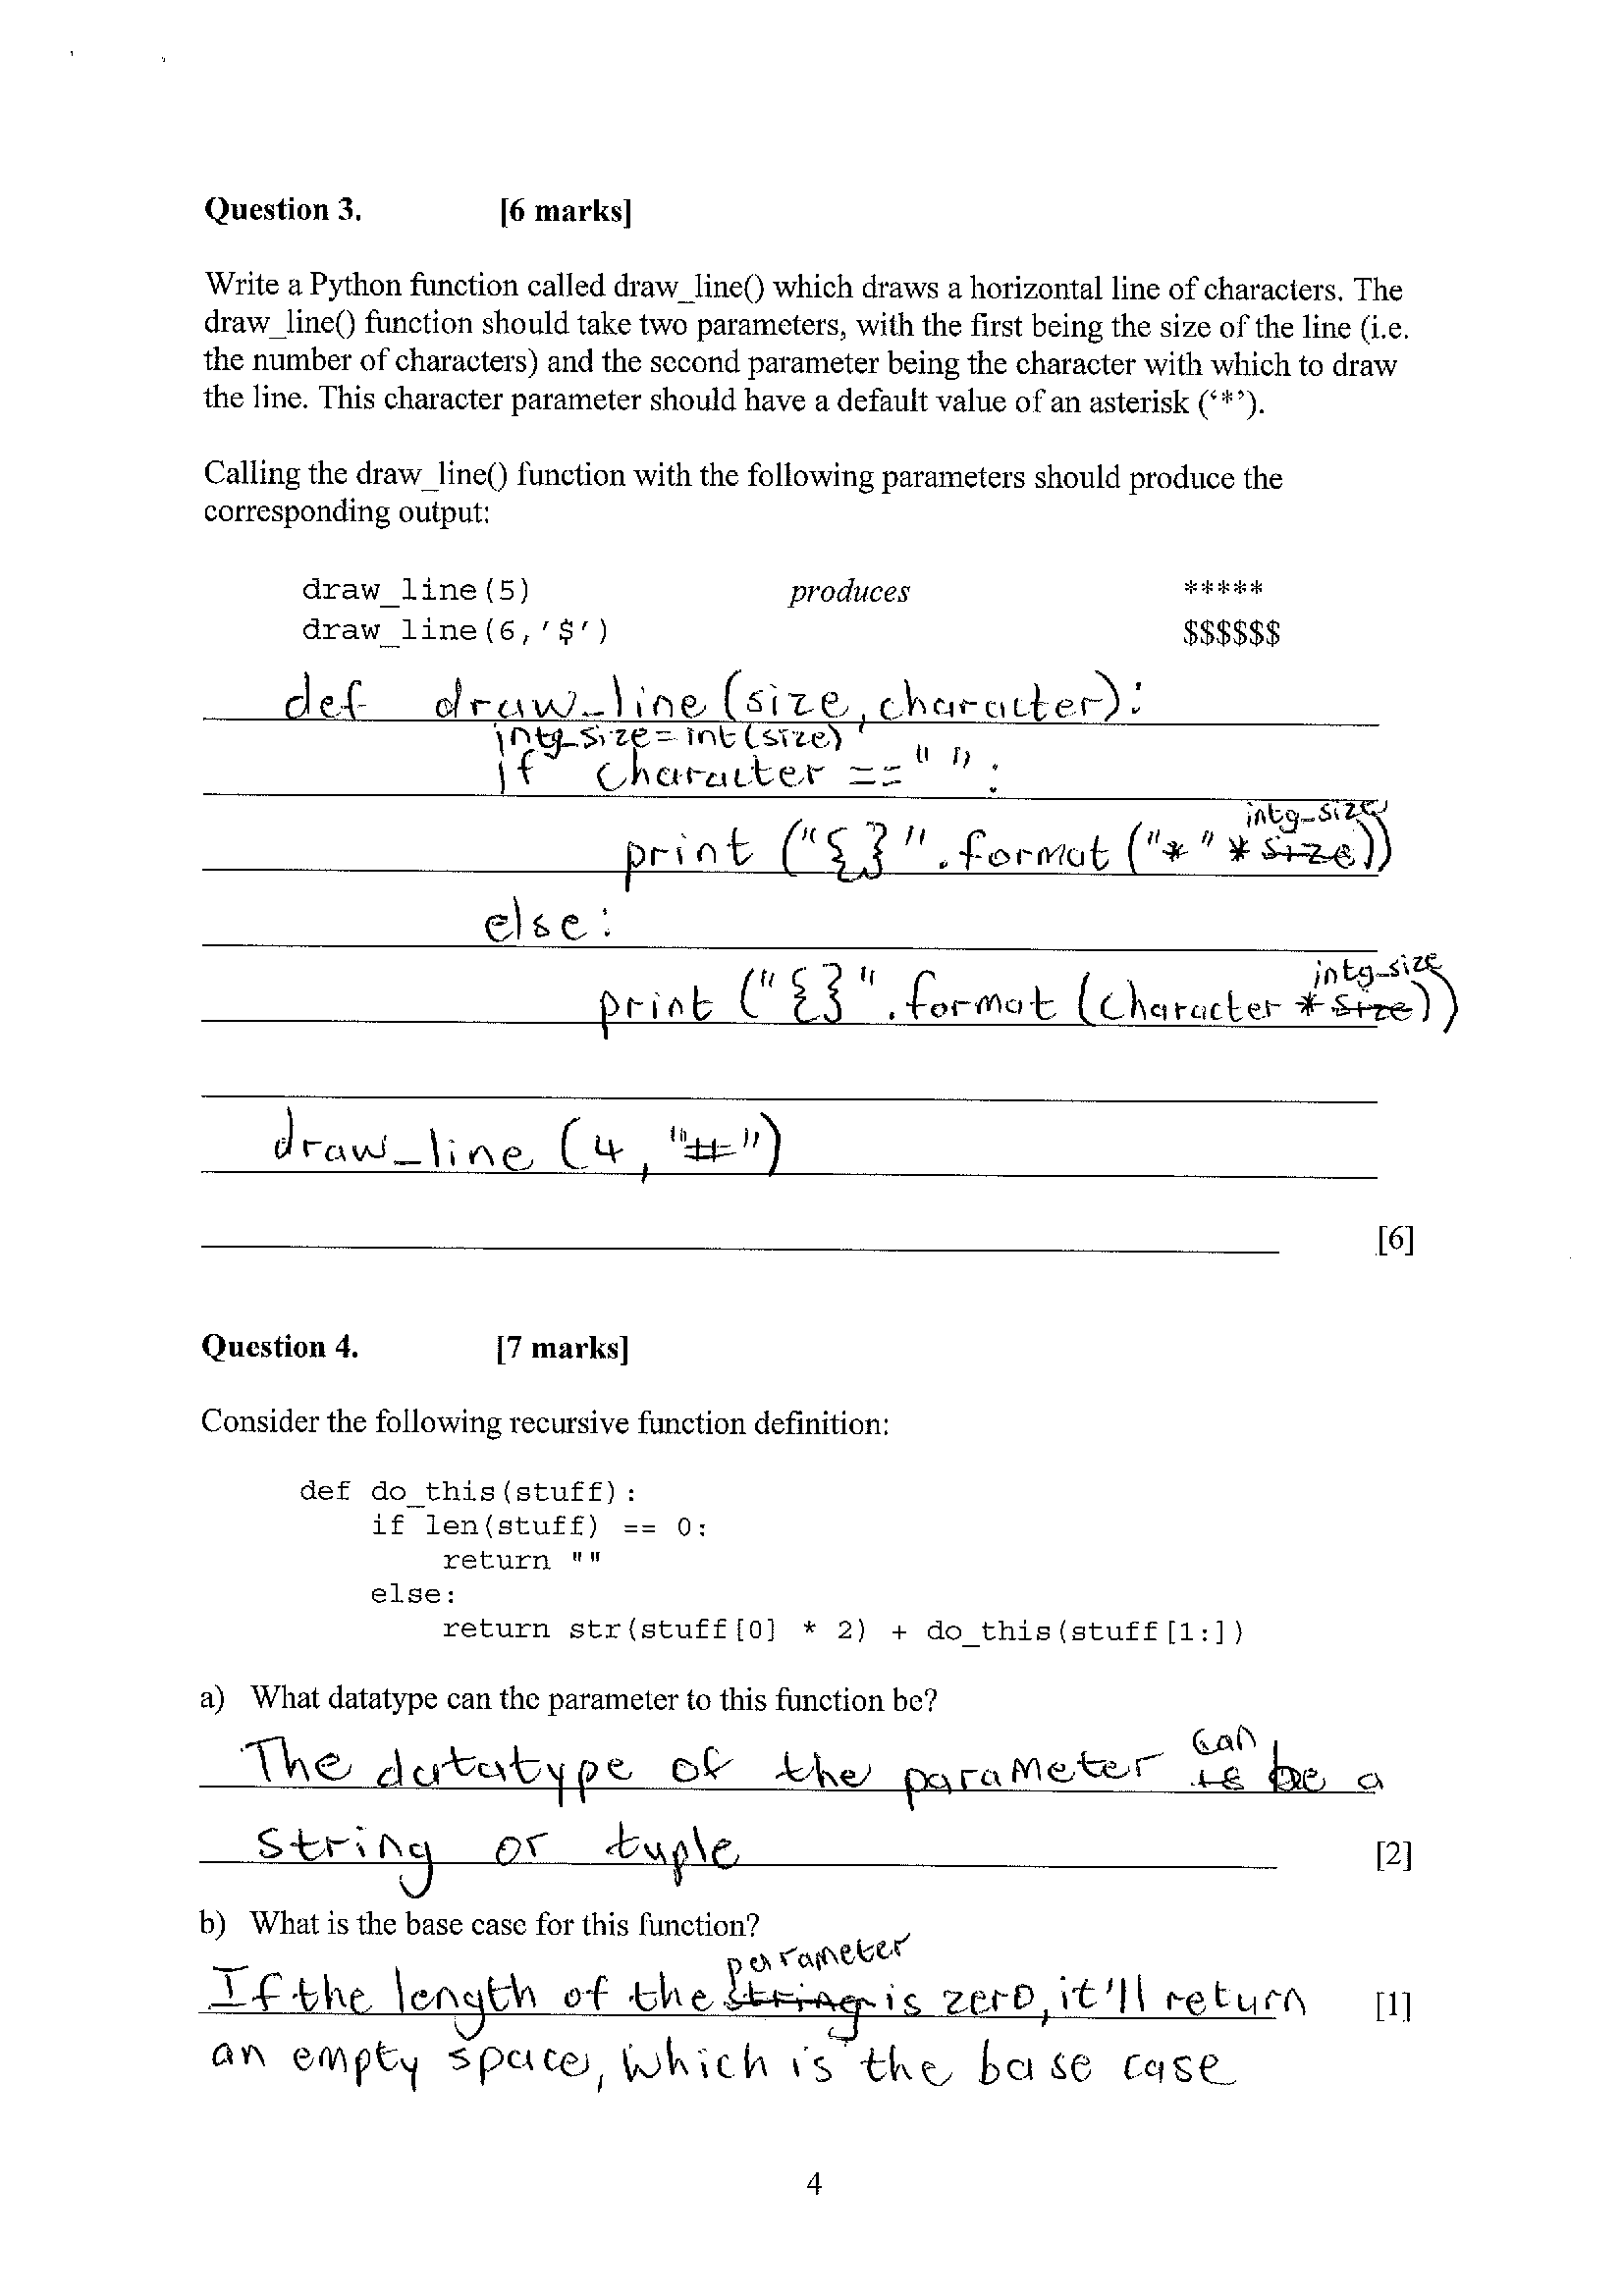 Question 3. [6 marks]
Write a Python function called draw_line() which draws a horizontal line of characters. The
draw_line() function should take two parameters, with the first being the size of the line (i.e.
the number of characters) and the second parameter being the character with which to draw
the line. This character parameter should have a default value of an asterisk (‘*’).
Calling the draw_line() function with the following parameters should produce the
corresponding output:
draw_line(5) produces *****
draw_line(6,'$') $$$$$$
def draw_line (size, character):
intg_size = int (size)
if character == " ":
intg_size
print ("{}".format ("*" * size))
else:
intg_size
print ("{}".format (character * size))
draw_line (4, "#")
[6]
Question 4. [7 marks]
Consider the following recursive function definition:
def do_this(stuff):
if len(stuff) == 0:
return ""
else:
return str(stuff[0] * 2) + do_this(stuff[1:])
a) What datatype can the parameter to this function be?
can
The datatype of the parameter is be a
string or tuple [2]
b) What is the base case for this function?
parameter
If the length of the string is zero, it'll return [1]
an empty space, which is the base case
4